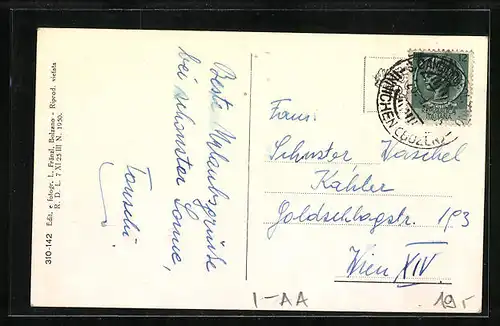 310-142 Edit. e fotogr. L. Fränzl, Bolzano - Riprod. vietata
R. D. L. 7 XI 25 III N. 1950.
Beste Urlaubsgrüße
bei schönster Sonne,
Fam.
Schuster
Kähler
Goldschlagstr. 193
Wien XIV.
I-AA
19